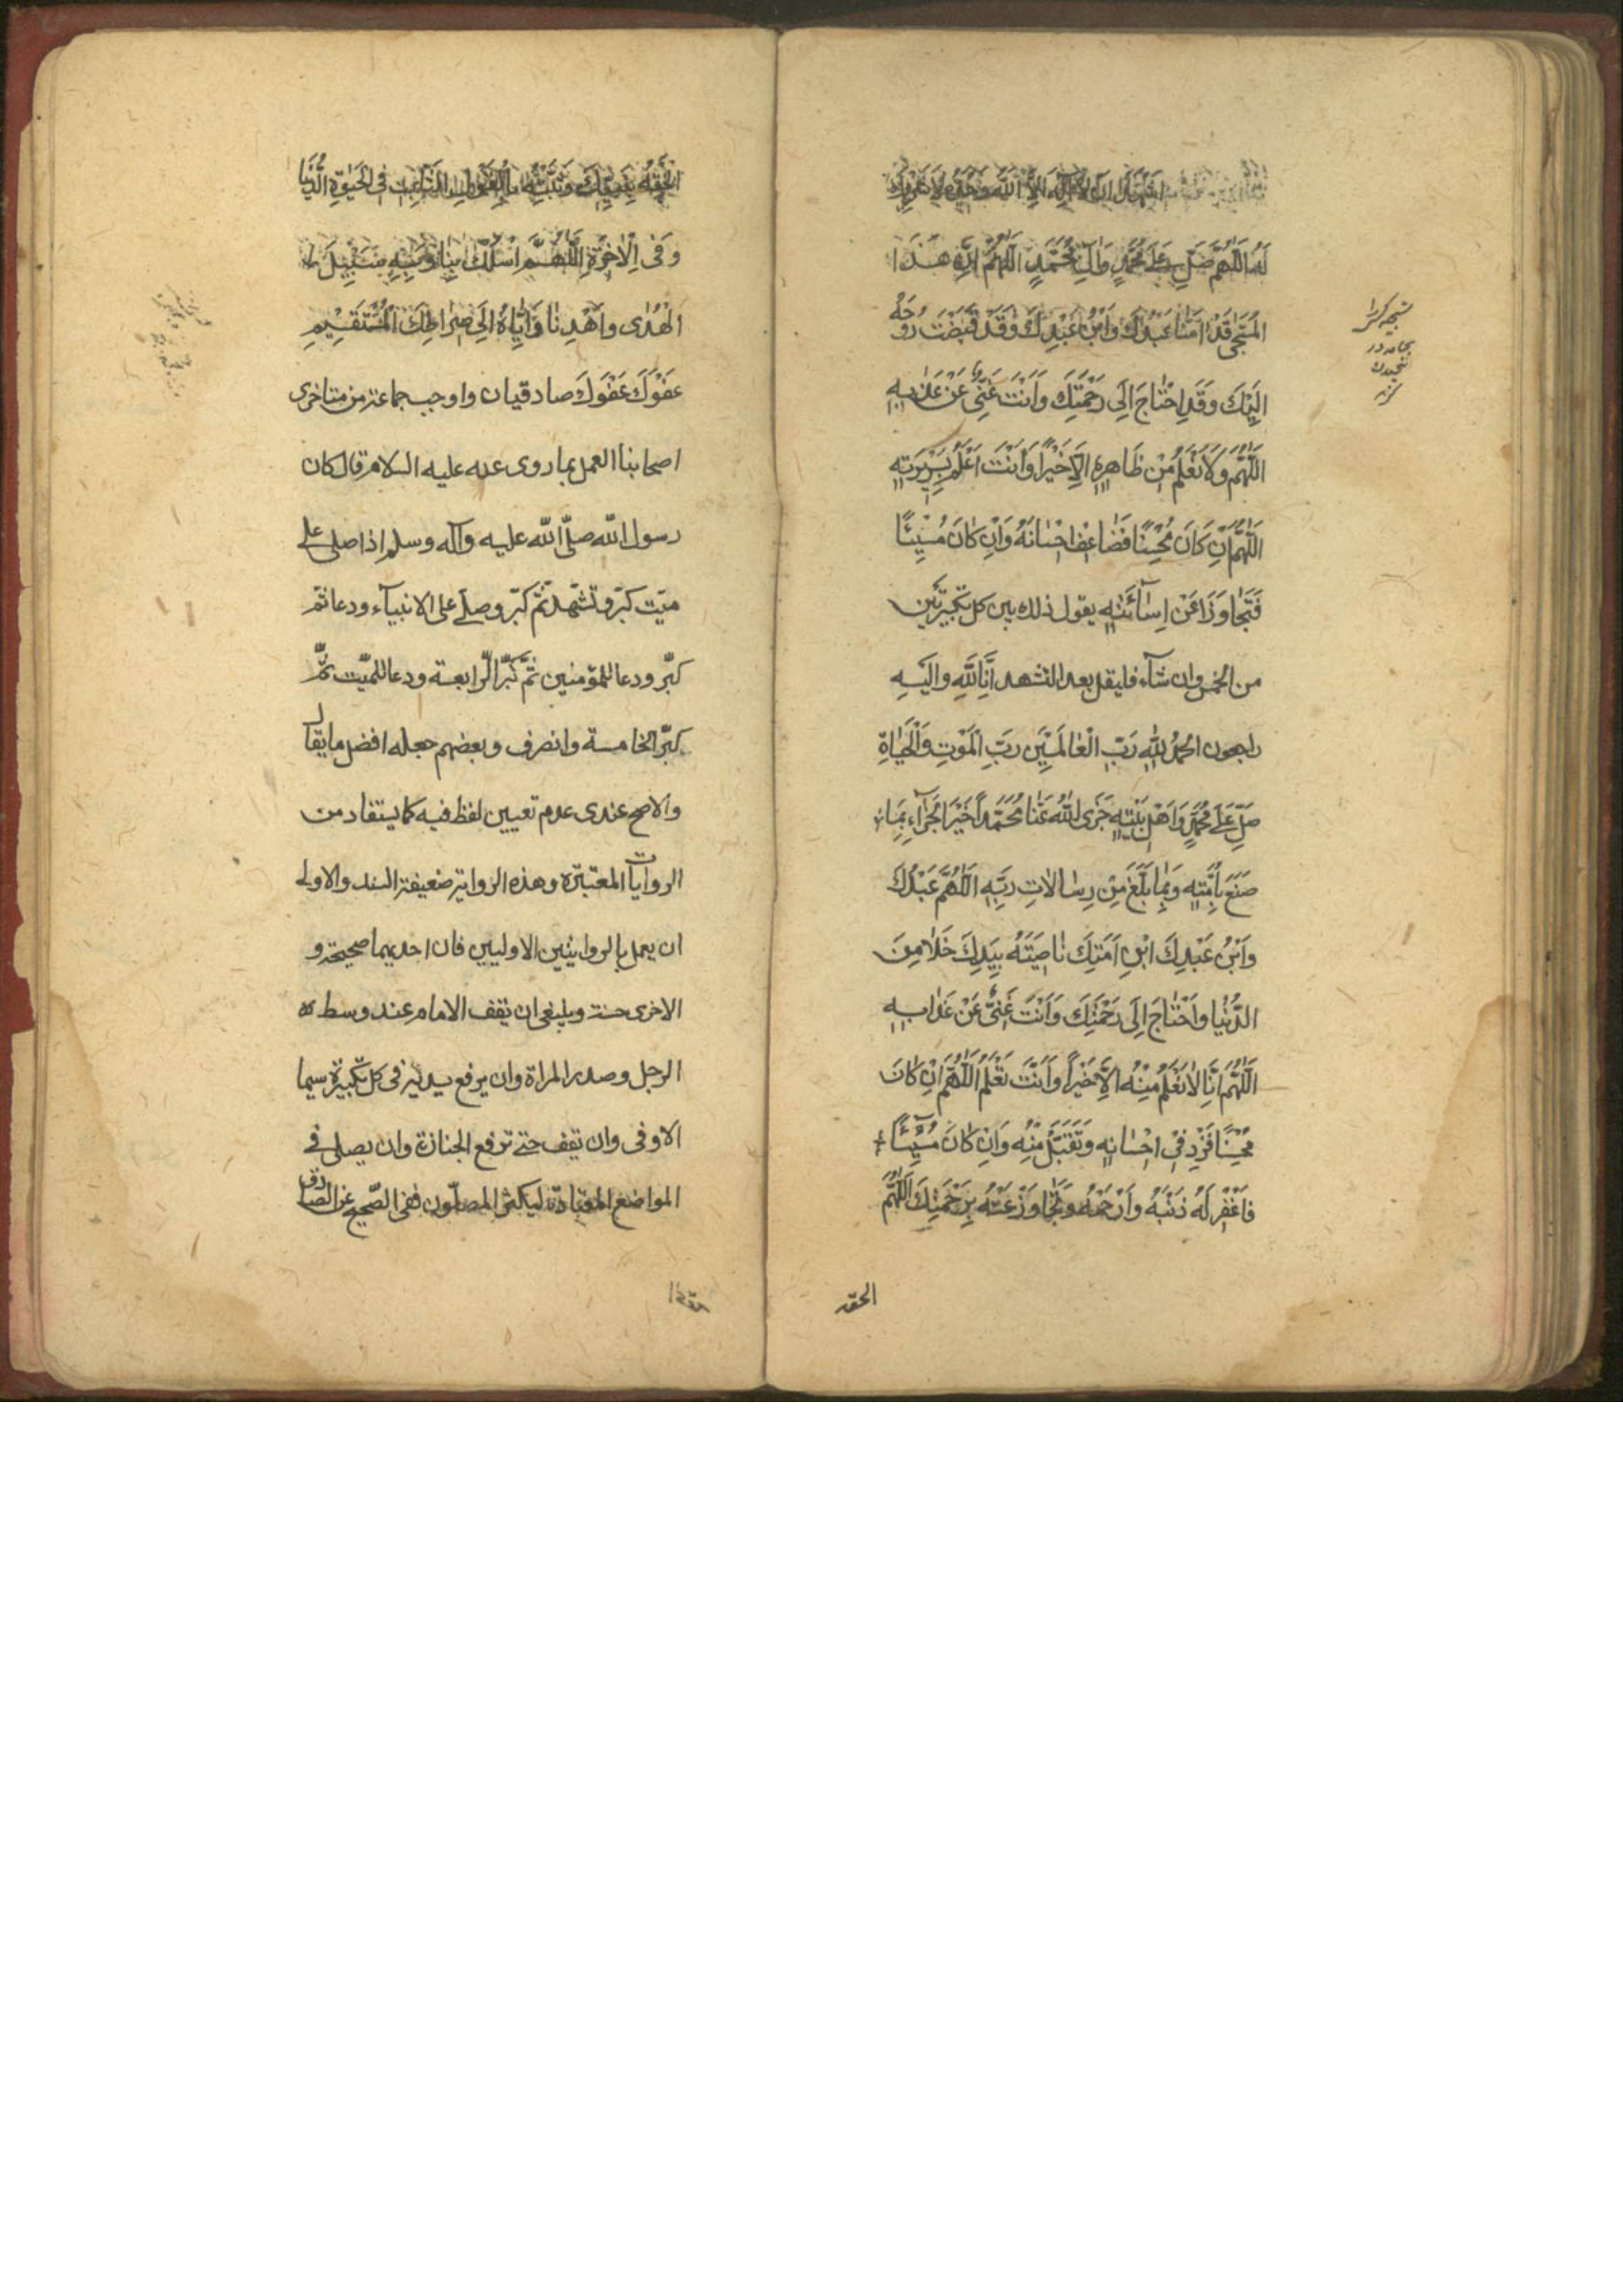 اَشْهَدُ اَنْ لاٰ اِلٰهَ اِلاَّ اللّٰهُ وَحْدَهُ لاٰ شَرِيكَ
لَهُ اَللّٰهُمَّ صَلِّ عَلٰى مُحَمَّدٍ وَاٰلِ مُحَمَّدٍ اَللّٰهُمَّ اِنَّ هٰذَا
الْمُسَجّٰى قُدّٰامَنٰا عَبْدُكَ وَابْنُ عَبْدِكَ وَقَدْ قَبَضْتَ رُوحَهُ
اِلَيْكَ وَقَدِ احْتٰاجَ اِلَى رَحْمَتِكَ وَاَنْتَ غَنِىٌّ عَنْ عَذٰابِهِ
اَللّٰهُمَّ وَلاٰ نَعْلَمُ مِنْ ظَاهِرِهِ اِلاّٰ خَيْرًا وَاَنْتَ اَعْلَمُ بِسَرِيرَتِهِ
اَللّٰهُمَّ اِنْ كَانَ مُحْسِنًا فَضٰاعِفْ اِحْسٰانَهُ وَاِنْ كٰانَ مُسِيْئًا
فَتَجٰاوَزْ عَنْ اِسٰآئَتِهِ يقول ذلك بين كل تكبيرتين
من الخمس وان شآء فليقل بعد التشهد اِنَّا لِلّٰهِ واِلَيْهِ
راجعون الحمدُ لِلّٰهِ رَبِّ الْعٰالَمِيْنَ رَبِّ الْمَوْتِ وَالْحَيٰاةِ
صَلِّ عَلٰى مُحَمَّدٍ وَاَهْلِ بَيْتِهِ جَزَى اللّٰهُ عَنّٰا مُحَمَّداً خَيْرَ الْجَزٰآءِ بِمٰا
صَنَعَ بِاُمَّتِهِ وَبِمٰا بَلَّغَ مِنْ رِسٰالاٰتِ رَبِّهِ اَللّٰهُمَّ عَبْدُكَ
وَابْنُ عَبْدِكَ ابْنُ اَمَتِكَ نٰاصِيَتُهُ بِيَدِكَ خَلاٰ مِنَ
الدُّنْيٰا وَاحْتٰاجَ اِلَى رَحْمَتِكَ وَاَنْتَ غَنِىٌّ عَنْ عَذٰابِهِ
اَللّٰهُمَّ اِنّٰا لاٰ نَعْلَمُ مِنْهُ اِلاّٰ خَيْراً وَاَنْتَ تَعْلَمُ اَللّٰهُمَّ اِنْ كٰانَ
مُحْسِنًا فَزِدْ فِىْ اِحْسٰانِهِ وَتَقَبَّلْ مِنْهُ وَاِنْ كٰانَ مُسِيْئًا
فَاغْفِرْ لَهُ ذَنْبَهُ وَارْحَمْهُ وَتَجٰاوَزْ عَنْهُ بِرَحْمَتِكَ اَللّٰهُمَّ
الحقه
اَلْحِقْهُ بِنَبِيِّكَ وَثَبِّتْهُ بِالْقَوْلِ الثّٰابِتِ فِى الْحَيٰوةِ الدُّنْيٰا
وَفِى الْاٰخِرَةِ اَللّٰهُمَّ اسْلُكْ بِنٰا وَبِهِ سَبِيْلَ
الْهُدٰى وَاهْدِنٰا وَاِيّٰاهُ اِلَى صِرٰاطِكَ الْمُسْتَقِيْمِ
عَفْوَكَ عَفْوَكَ صادقيان واوجب جماعة من متاخرى
اصحابنا العمل بما روى عنه عليه السلام قال كان
رسول اللّه صلّى اللّه عليه وآله وسلم اذا صلى على
ميّت كبّر وتشهّد ثمّ كبّر وصلّى على الانبيآء ودعا ثمّ
كبّر ودعا للمؤمنين ثمّ كبّر الرّابعة ودعا للميّت ثمّ
كبّر الخامسة وانصرف وبعضهم جعله افضل ما يقال
والاصح عندى عدم تعيين لفظ فيه كما يستفاد من
الروايات المعتبرة وهذه الرواية ضعيفة السند والاولى
ان يعمل بالروايتين الاوليين فان احديهما صحيحة و
الاخرى حسنة وينبغى ان يقف الامام عند وسط
الرجل وصدر المراة وان يرفع يديه فى كل تكبيرة سيما
الاولى وان يقف حتى ترفع الجنازة وان يصلى فى
المواضع المعتادة ليكثر المصلّون ففى الصّحيح عن الصّادق